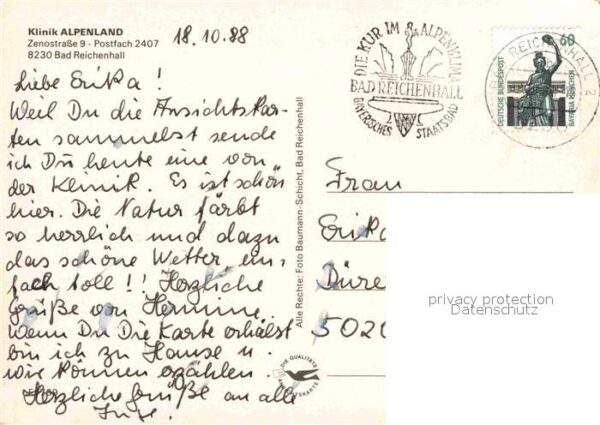 Klinik ALPENLAND
Zenostraße 9 - Postfach 2407
8230 Bad Reichenhall
18.10.88
Liebe Erika!
Weil Du die Ansichtskar-
ten sammelst sende
ich Dir heute eine von
der Klinik. Es ist schön
hier. Die Natur färbt
so herrlich und dazu
das schöne Wetter, ein-
fach toll!! Herzliche
Grüße von Hermine.
Wenn Du Die Karte erhälst
bin ich zu Hause u.
wir können erzählen.
Herzliche Grüße an alle
Inge.
Alle Rechte: Foto Baumann-Schicht, Bad Reichenhall
DIE QUALITÄTS
DIE KUR IM ALPENKLIMA
BAD REICHENHALL
BAYERISCHES STAATSBAD
REICHENHALL 2
60
DEUTSCHE BUNDESPOST
BAVARIA MÜNCHEN
Frau
Erika
Düre
502
privacy protection
Datenschutz